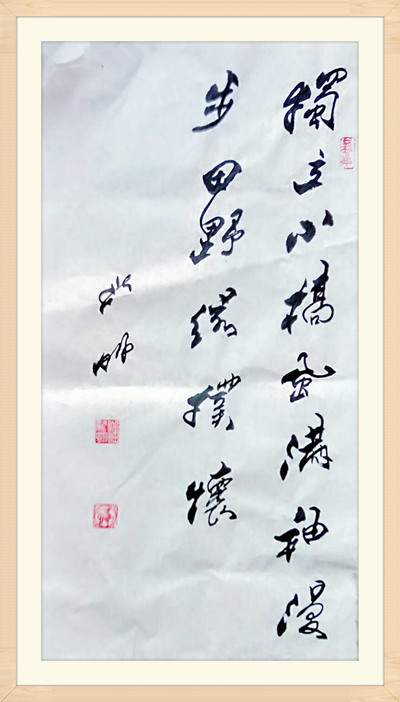 獨立小橋風滿袖漫
步田野綠撲懷